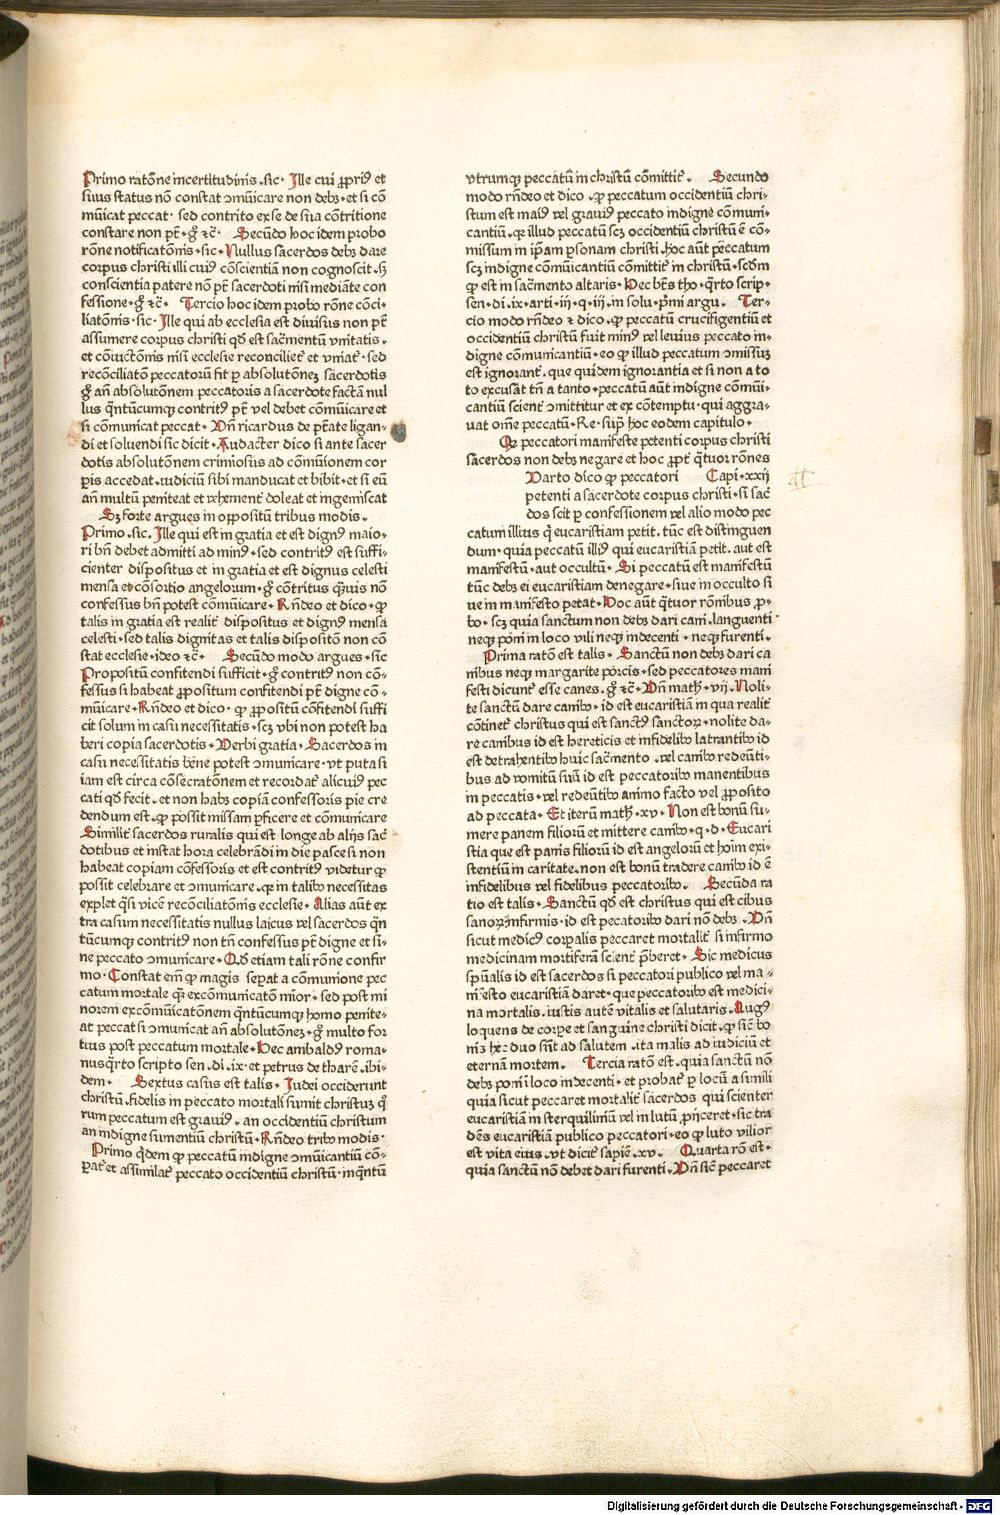 Primo ratōne incertitudinis .sic. Ille cui ꝓpriꝰ et
suus status nō constat ↄmūicare non debꝫ. et si cō
mūicat peccat. sed contrito ex se de sua cōtritione
constare non pt̄. gͦ ⁊c̄. Secūdo hoc idem probo
rōne notificatōnis. sic. Nullus sacerdos debꝫ dare
corpus christi illi cuiꝰ cōscientiā non cognoscit. sꝫ
conscientia patere nō pt̄ sacerdoti nisi mediāte con
fessione. gͦ ⁊c̄. Tercio hoc idem probo rōne cōci-
liatōnis. sic. Ille qui ab ecclesia est diuisus non pt̄
assumere corpus christi qd̄ est sacͣmentū vnitatis.
et cōiūctōnis nisi ecclesie reconciliet᷑ et vniat᷑. sed
recōciliatō peccatorū fit ꝑ absolutōneꝫ sacerdotis
gͦ an̄ absolutōnem peccatoris a sacerdote factā nul
lus qͣntūcumqꝫ contritꝰ pt̄ vel debet cōmūicare et
si cōmunicat peccat. Vn̄ ricardus de pt̄ate ligan-
di et soluendi sic dicit. Audacter dico si ante sacer
dotis absolutōnem crimiosus ad cōmūionem cor
ꝑis accedat. iudiciū sibi manducat et bibit. et si eū
an̄ multū peniteat et vehement᷑ doleat et ingemiscat
Sꝫ forte argues in oppositū tribus modis.
Primo .sic. Ille qui est in gratia et est dignꝰ maio-
ri bn̄ debet admitti ad minꝰ. sed contritꝰ est suffi-
cienter dispositus et in gratia et est dignus celesti
mensa et cōsortio angelorum. gͦ cōtritus qͣuis nō
confessus bn̄ potest cōmūicare. Rn̄deo et dico. ꝙ
talis in gratia est realit᷑ dispositus et dignꝰ mensa
celesti. sed talis dignitas et talis dispositō non cō
stat ecclesie. ideo ⁊c̄. Secūdo modo argues. sic
Propositū confitendi sufficit. gͦ contritꝰ non cō-
fessus si habeat ꝓpositum confitendi pt̄ digne cō-
mūicare. Rn̄deo et dico. ꝙ ꝓpositū cōfitendi suffi
cit solum in casu necessitatis. scꝫ vbi non potest ha
beri copia sacerdotis. Verbi gratia. Sacerdos in
casu necessitatis bene potest ↄmunicare. vt puta si
iam est circa cōsecratōnem et recordat᷑ alicuiꝰ pec
cati qd̄ fecit. et non habꝫ copiā confessoris pie cre
dendum est. ꝙ possit missam ꝑficere et cōmunicare
Similit᷑ sacerdos ruralis qui est longe ab alijs sac̄
dotibus et instat hora celebrādi in die pasce si non
habeat copiam cōfessoris et est contritꝰ videtur ꝙ
possit celebrare et ↄmunicare. ꝙ in talibꝰ necessitas
explet qͣsi vicē recōciliatōnis ecclesie. Alias aūt ex
tra casum necessitatis nullus laicus vel sacerdos qͣn
tūcumqꝫ contritꝰ non tn̄ confessus pt̄ digne et si-
ne peccato ↄmunicare. Qd̄ etiam tali rōne confir
mo. Constat enī ꝙ magis seꝑat a cōmunione pec
catum mortale qͣꝫ excōmunicatō mīor. sed post mi
norem excōmūicatōnem qͣntūcumqꝫ homo penite-
at peccat si ↄmunicat an̄ absolutōneꝫ. gͦ multo for
tius post peccatum mortale. Hec ambaldꝰ roma-
nus qͣrto scripto sen. di. ix. et petrus de tharē. ibi-
dem. Sextus casus est talis. Iudei occiderunt
christū. fidelis in peccato mortali sumit christuꝫ qͦ
rum peccatum est grauiꝰ. an occidentiū christum
an indigne sumentiū christū. Rn̄deo tribꝰ modis.
Primo qͥdem ꝙ peccatū indigne ↄmūicantiū cō-
ꝑat᷑ et assimilat᷑ peccato occidentiū christū. inqͣntū
vtrumqꝫ peccatū in christū cōmittit᷑. Secundo
modo rn̄deo et dico. ꝙ peccatum occidentiū chri-
stum est maiꝰ vel grauiꝰ peccato indigne cōmuni-
cantiū. qꝫ illud peccatū scꝫ occidentiū christū ē cō-
missum in ip̄am ꝑsonam christi. hoc aūt peccatum
scꝫ indigne cōmūicantiū cōmittit᷑ in christū. scd̄m
ꝙ est in sacͣmento altaris. Hec bt̄s tho. qͣrto scrip.
sen. di. ix. arti. iij. q. iij. in solu. pͥmi argu. Ter-
cio modo rn̄deo ⁊ dico. ꝙ peccatū crucifigentiū et
occidentiū christū fuit minꝰ vel leuius peccato in-
digne cōmunicantiū. eo ꝙ illud peccatum ↄmissuꝫ
est ignorant᷑. que quidem ignorantia et si non a to
to excusat tn̄ a tanto. peccatū aūt indigne cōmūi-
cantiū scient᷑ ↄmittitur et ex cōtemptu. qui aggra-
uat om̄e peccatū. Re. supͣ hoc eodem capitulo.
Qꝫ peccatori manifeste petenti corpus christi
sacerdos non debꝫ negare et hoc ꝓpt᷑ qͣtuor rōnes
Varto dico ꝙ peccatori Capi. xxij
petenti a sacerdote corpus christi. si sac̄
dos scit ꝑ confessionem vel alio modo pec
catum illius qͥ eucaristiam petit. tūc est distinguen
dum. quia peccatū illiꝰ qui eucaristiā petit. aut est
manifestū. aut occultū. Si peccatū est manifestū
tūc debꝫ ei eucaristiam denegare. siue in occulto si
ue in manifesto petat. Hoc aūt qͣtuor rōnibus ꝓ-
bo. scꝫ quia sanctum non debꝫ dari cani. languenti
neqꝫ poni in loco vili neqꝫ indecenti. neqꝫ furenti.
Prima ratō est talis. Sanctū non debꝫ dari ca
nibus neqꝫ margarite porcis. sed peccatores mani
festi dicunt᷑ esse canes. gͦ ⁊c̄. Vn̄ math. vij. Noli-
te sanctū dare canibꝰ. id est eucaristiā in qua realit᷑
cōtinet᷑ christus qui est sanctꝰ sanctoꝝ. nolite da-
re canibus id est hereticis et infidelibꝰ latrantibꝰ id
est detrahentibꝰ huic sacͣmento. vel canibꝰ redeūti-
bus ad vomitū suū id est peccatoribꝰ manentibus
in peccatis. vel redeūtibꝰ animo facto vel ꝓposito
ad peccata. Et iterū math. xv. Non est bonū su-
mere panem filiorū et mittere canibꝰ. q. d. Eucari
stia que est panis filiorū id est angelorū et hoīm exi-
stentiū in caritate. non est bonū tradere canibꝰ id ē
infidelibus vel fidelibus peccatoribꝰ. Secūda ra
tio est talis. Sanctū qd̄ est christus qui est cibus
sanoꝝ ⁊ infirmis. id est pecatoribꝰ dari nō debꝫ. Vn̄
sicut medicꝰ corꝑalis peccaret mortalit᷑ si infirmo
medicinam mortiferā scient᷑ p̄beret. Sic medicus
spūalis id est sacerdos si peccatori publico vel ma-
nifesto eucaristiā daret. que peccatoribꝰ est medici-
na mortalis. iustis autē vitalis et salutaris. Augꝰ
loquens de corꝑe et sanguine christi dicit. ꝙ sic̄ bo
nis hec duo sūt ad salutem. ita malis ad iudiciū et
eternā mortem. Tercia ratō est. quia sanctū nō
debꝫ poni ī loco indecenti. et probat᷑ ꝑ locū a simili
quia sicut peccaret mortalit᷑ sacerdos qui scienter
eucaristiā in sterquiliniū vel in lutū ꝓijceret. sic tra
dēs eucaristiā publico peccatori. eo ꝙ luto vilior
est vita eius. vt dicit᷑ sapiē. xv. Quarta rō est.
quia sanctū nō debet dari furenti. Vn̄ sic̄ peccaret
Digitalisierung gefördert durch die Deutsche Forschungsgemeinschaft - DFG